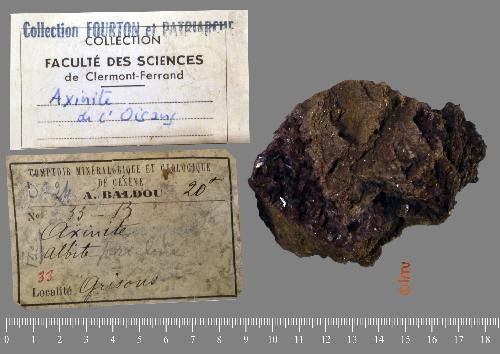 Collection FOURTON et PATRIARCHE
COLLECTION
FACULTÉ DES SCIENCES
de Clermont-Ferrand
Axinite
de l'Oisans
COMPTOIR MINÉRALOGIQUE ET GÉOLOGIQUE
DE GENÈVE
A. BALDOU
20
No 33 B
Axinite
Albite
33
Localité Grisons
0 1 2 3 4 5 6 7 8 9 10 11 12 13 14 15 16 17 18